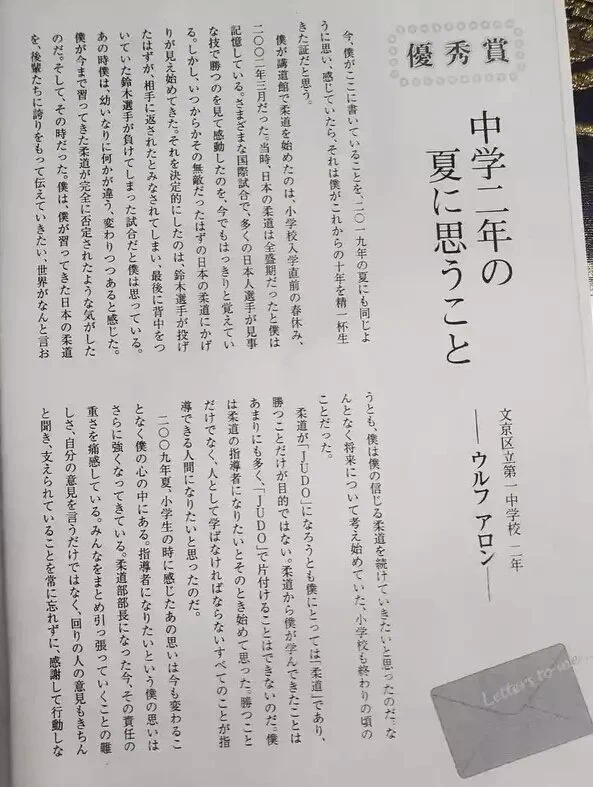 優秀賞
中学二年の
夏に思うこと
文京区立第一中学校 二年
―ウルフ アロン―
今、僕がここに書いていることを、二〇一九年の夏にも同じよ
うに思い、感じていたら、それは僕がこれからの十年を精一杯生
きた証だと思う。
僕が講道館で柔道を始めたのは、小学校入学直前の春休み、
二〇〇二年三月だった。当時、日本の柔道は全盛期だったと僕は
記憶している。さまざまな国際試合で、多くの日本人選手が見事
な技で勝つのを見て感動したのを、今でもはっきりと覚えてい
る。しかし、いつからかその無敵だったはずの日本の柔道にかげ
りが見え始めてきた。それを決定的にしたのは、鈴木選手が投げ
たはずが、相手に返されたとみなされてしまい、最後に背中をつ
いていた鈴木選手が負けてしまった試合だと僕は思っている。
あの時僕は、幼いなりに何かが違う、変わりつつあると感じた。
僕が今まで習ってきた柔道が完全に否定されたような気がした
のだ。そして、その時だった。僕は、僕が習ってきた日本の柔道
を、後輩たちに誇りをもって伝えていきたい、世界がなんと言お
うとも、僕は僕の信じる柔道を続けていきたいと思ったのだ。な
んとなく将来について考え始めていた、小学校も終わりの頃の
ことだった。
柔道が「JUDO」になろうとも僕にとっては「柔道」であり、
勝つことだけが目的ではない。柔道から僕が学んできたことは
あまりにも多く、「JUDO」で片付けることはできないのだ。僕
は柔道の指導者になりたいとそのとき始めて思った。勝つこと
だけでなく、人として学ばなければならないすべてのことが指
導できる人間になりたいと思ったのだ。
二〇〇九年夏、小学生の時に感じたあの思いは今も変わるこ
となく僕の心の中にある。指導者になりたいという僕の思いは
さらに強くなってきている。柔道部部長になった今、その責任の
重さを痛感している。みんなをまとめ引っ張っていくことの難
しさ、自分の意見を言うだけではなく、回りの人の意見もきちん
と聞き、支えられていることを常に忘れずに、感謝して行動しな
Letters to me...